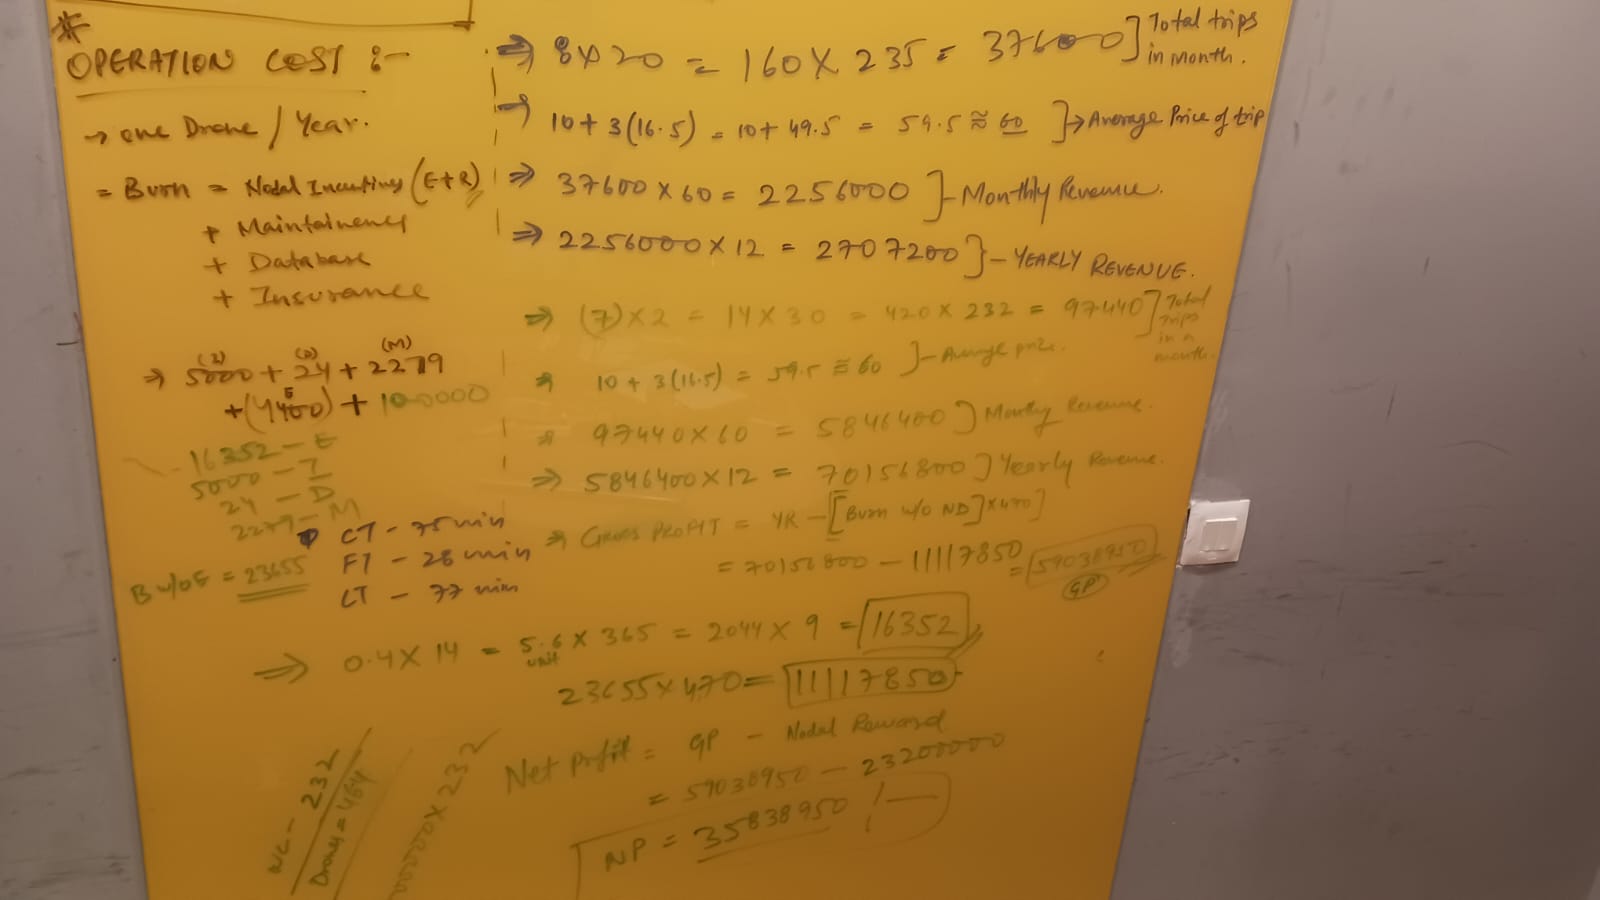 *
OPERATION COST :-
→ one Drone / Year.
= Burn = Nodal Incentives (E+R)
+ Maintainency
+ Database
+ Insurance
⇒ 5000 (I) + 24 (D) + 2279 (M)
+ (4400) E + 100000
16352 - E
5000 - I
24 - D
2279 - M
B w/o E = 23655
CT - 75 min
FT - 28 min
LT - 77 min
⇒ 8 x 20 = 160 x 235 = 37600 ] Total trips in month.
→ 10 + 3(16.5) = 10 + 49.5 = 59.5 ≈ 60 ] → Average Price of trip
⇒ 37600 x 60 = 2256000 ] - Monthly Revenue.
⇒ 2256000 x 12 = 2707200 } - YEARLY REVENUE.
⇒ (7) x 2 = 14 x 30 = 420 x 232 = 97440 ] Total Trips in a month.
⇒ 10 + 3(16.5) = 59.5 ≈ 60 ] - Average price.
⇒ 97440 x 60 = 5846400 ] Monthly Revenue.
⇒ 5846400 x 12 = 70156800 ] Yearly Revenue.
⇒ GROSS PROFIT = YR - [Burn w/o ND] x 470]
= 70156800 - 11117850 = 59038950
GP
⇒ 0.4 x 14 = 5.6 unit x 365 = 2044 x 9 = 16352
23655 x 470 = 11117850
Net profit = GP - Nodal Reward
= 59038950 - 23200000
NP = 35838950 /-
NC - 232
Drones = 464
00000 x 232